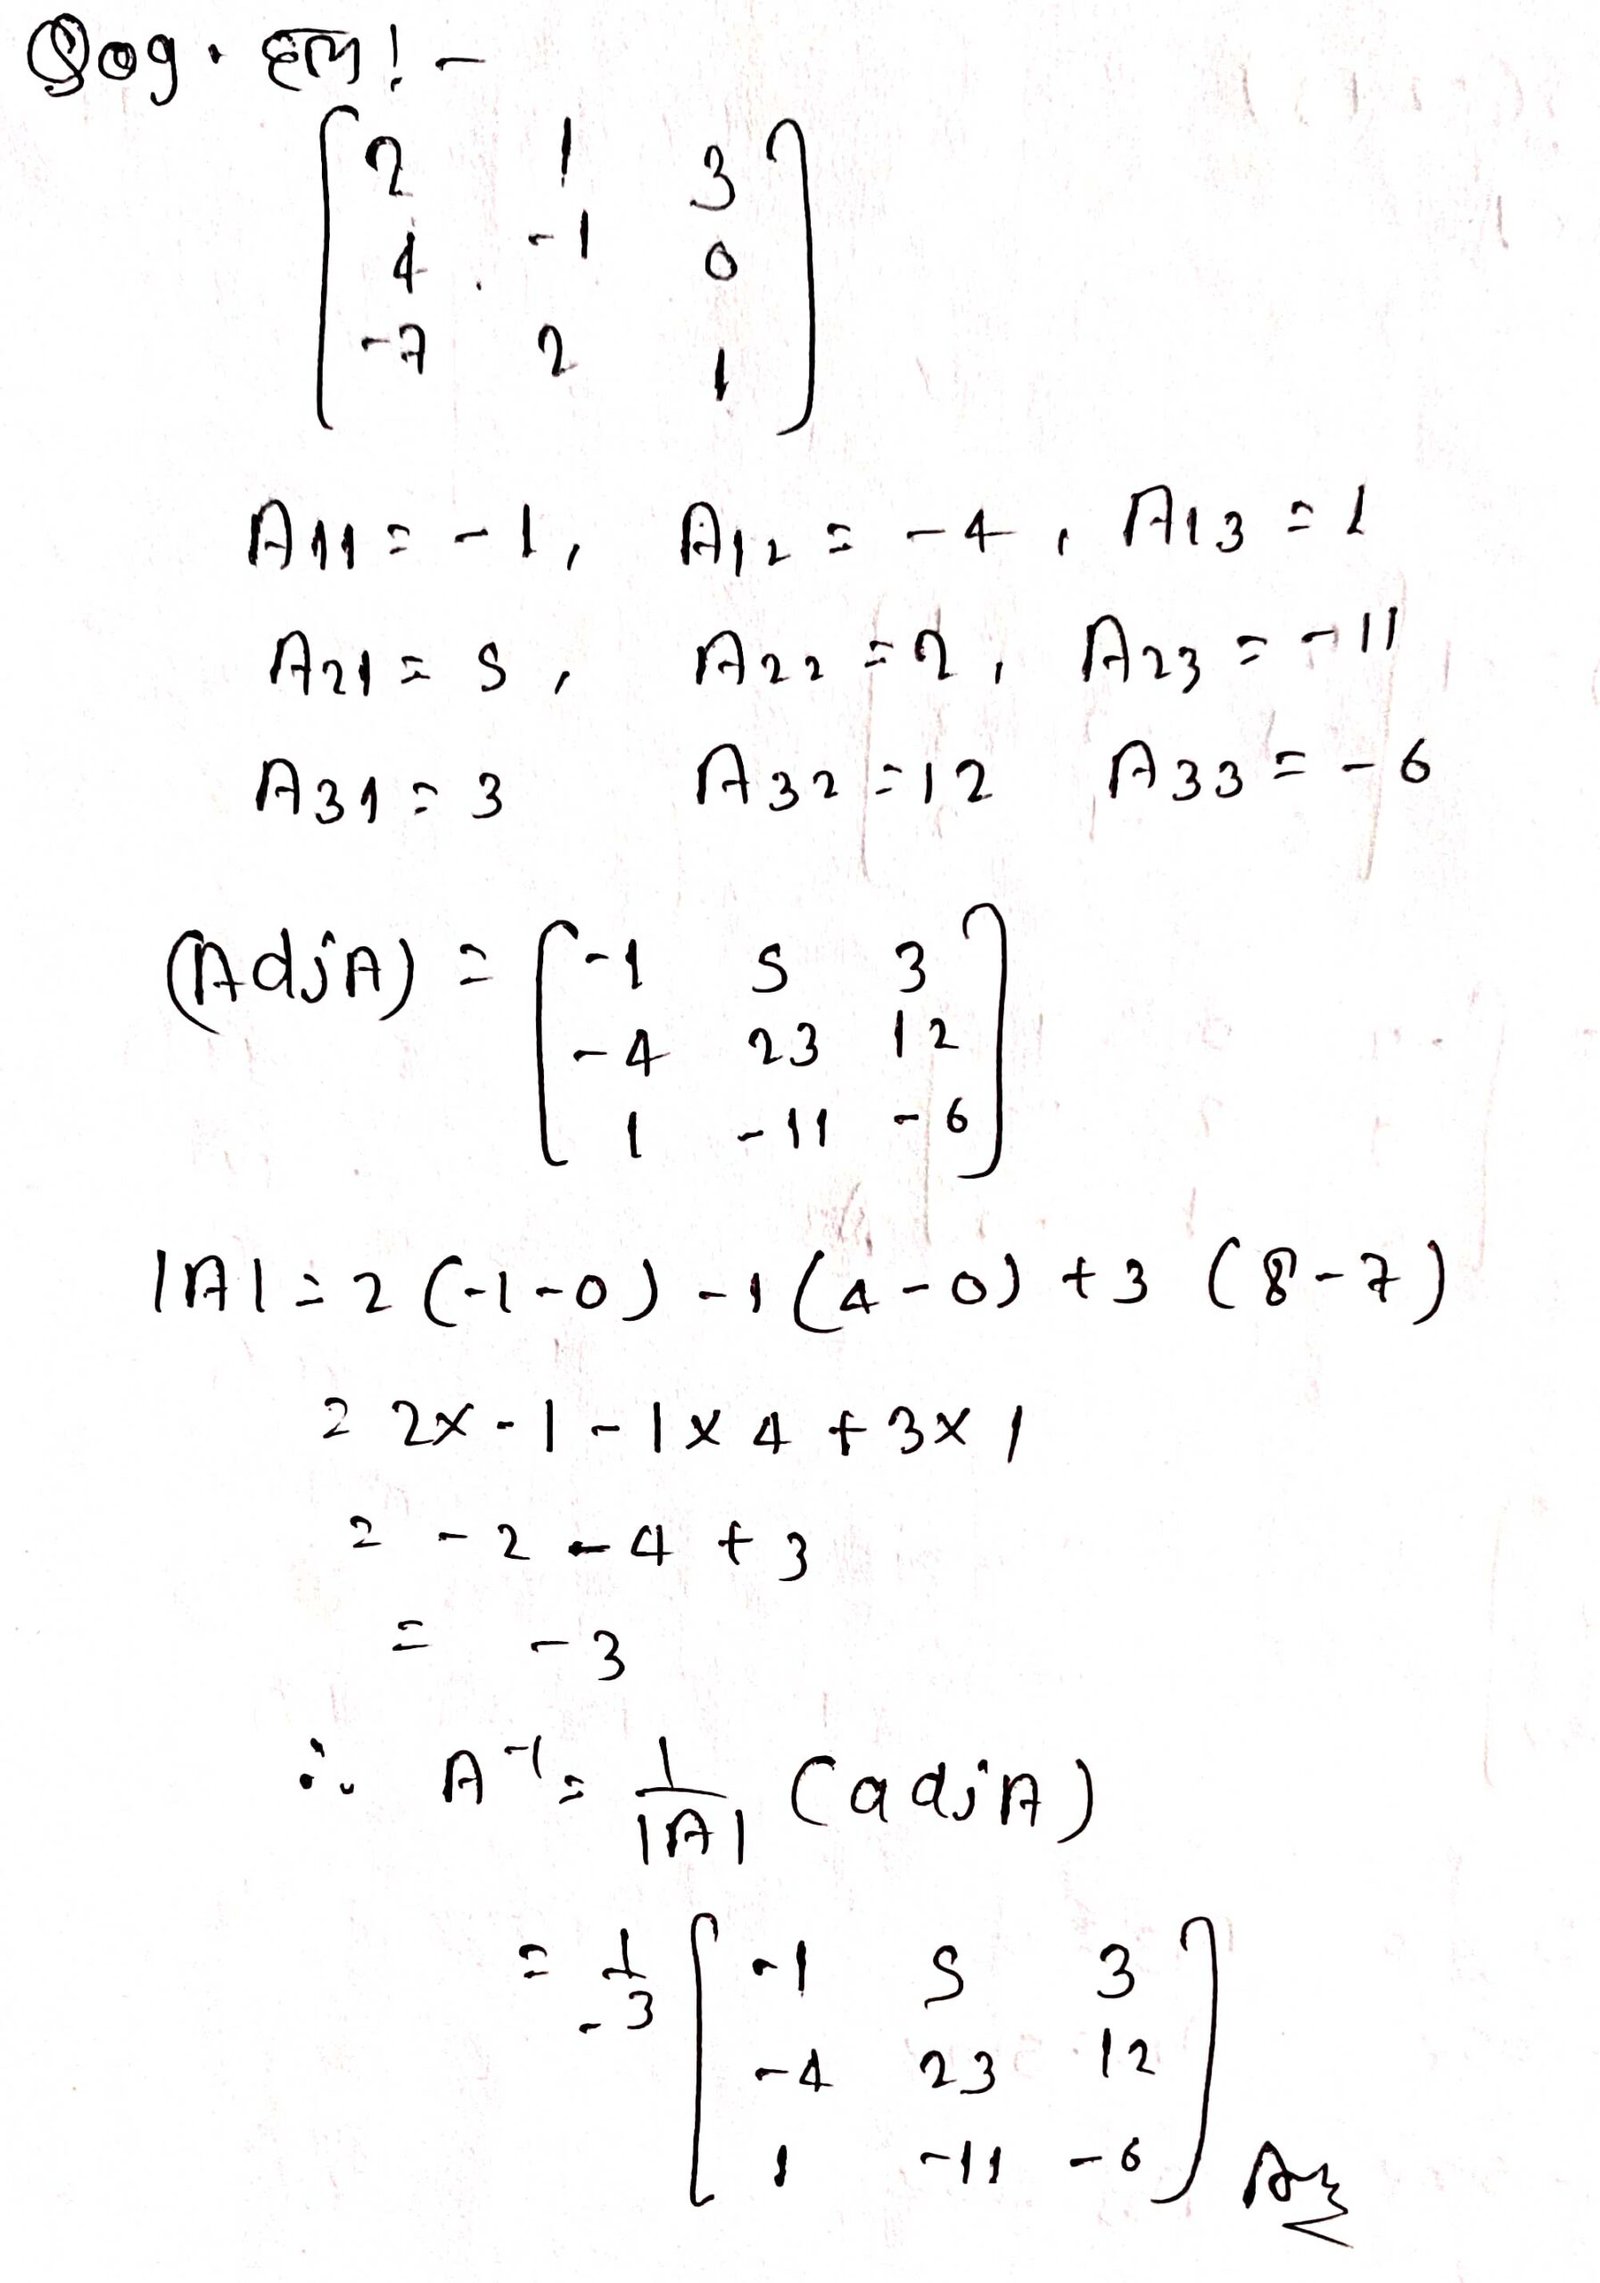 Qog. हल! -
[2 1 3
4 . -1 0
-7 2 1]
A11 = -1, A12 = -4, A13 = 1
A21 = 5, A22 = 2, A23 = -11
A31 = 3 A32 = 12 A33 = -6
(AdjA) = [-1 5 3
-4 23 12
1 -11 -6]
|A| = 2 (-1-0) -1 (4-0) +3 (8-7)
= 2x-1 -1x4 +3x1
= -2 -4 +3
= -3
∴ A⁻¹ = 1/|A| (adjA)
= 1/-3 [-1 5 3
-4 23 12
1 -11 -6] Ans